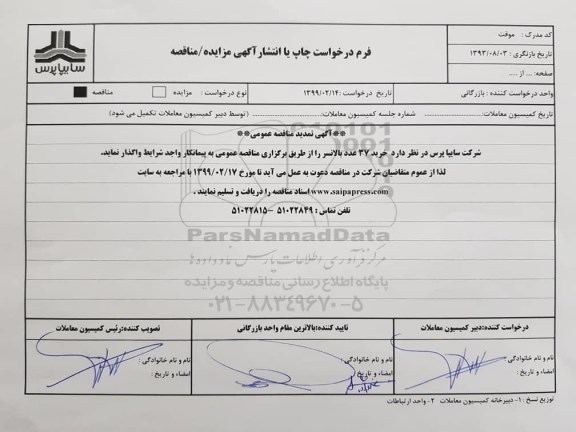 کد مدرک : موقت
تاریخ بازنگری : ۱۳۹۳/۰۸/۰۳
صفحه: ... از ...
فرم درخواست چاپ یا انتشارآگهی مزایده/مناقصه
سایپاپرس
واحد درخواست کننده : بازرگانی
تاریخ درخواست :۱۳۹۹/۰۲/۱۴
نوع درخواست : مزایده مناقصه
تاریخ کمیسیون معاملات: شماره جلسه کمیسیون معاملات: (توسط دبیر کمیسیون معاملات تکمیل می شود)
**آگهی تمدید مناقصه عمومی**
شرکت سایپا پرس در نظر دارد خرید ۳۷ عدد بالانسر را از طریق برگزاری مناقصه عمومی به پیمانکار واجد شرایط واگذار نماید.
لذا از عموم متقاضیان شرکت در مناقصه دعوت به عمل می آید تا مورخ ۱۳۹۹/۰۲/۱۷ با مراجعه به سایت
www.saipapress.com اسناد مناقصه را دریافت و تسلیم نمایند .
تلفن تماس : ۵۱۰۲۲۸۴۹ – ۵۱۰۲۲۸۱۵
ParsNamadData
مرکز فرآوری اطلاعات پارس نماد داده ها
پایگاه اطلاع رسانی مناقصه و مزایده
۰۲۱-۸۸۳۴۹۶۷۰-۵
درخواست کننده:دبیر کمیسیون معاملات
تایید کننده:بالاترین مقام واحد بازرگانی
تصویب کننده:رئیس کمیسیون معاملات
نام و نام خانوادگی :
امضاء و تاریخ :
نام و نام خانوادگی :
امضاء و تاریخ :
نام و نام خانوادگی :
امضاء و تاریخ :
توزیع نسخ : ۱- دبیرخانه کمیسیون معاملات ۲- واحد ارتباطات